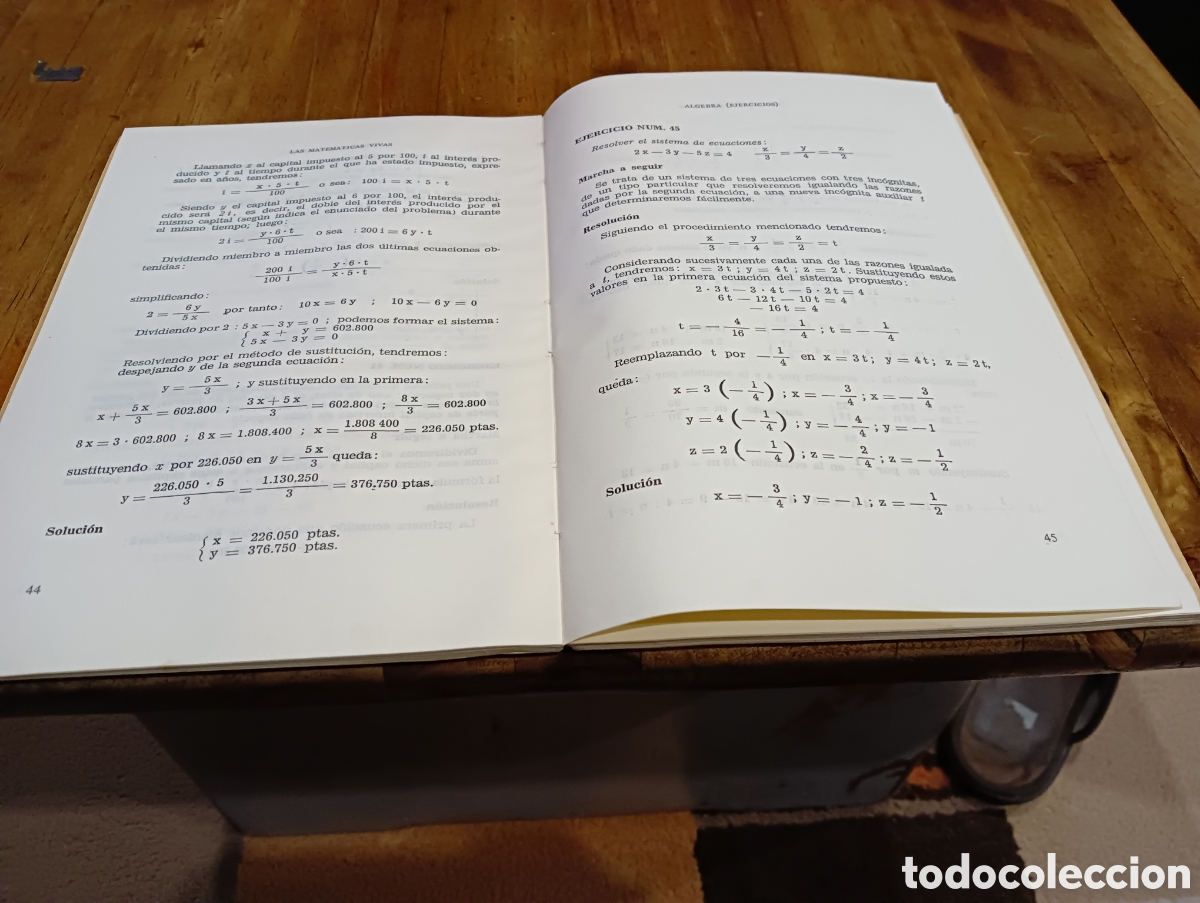 LAS MATEMATICAS VIVAS
Llamando x al capital impuesto al 5 por 100, i al interés pro-
ducido y t al tiempo durante el que ha estado impuesto, expre-
sado en años, tendremos:
i = x · 5 · t / 100 o sea: 100 i = x · 5 · t
Siendo y el capital impuesto al 6 por 100, el interés produ-
cido será 2 i, es decir, el doble del interés producido por el
mismo capital (según indica el enunciado del problema) durante
el mismo tiempo; luego:
2 i = y · 6 · t / 100 o sea : 200 i = 6 y · t
Dividiendo miembro a miembro las dos últimas ecuaciones ob-
tenidas:
200 i / 100 i = y · 6 · t / x · 5 · t
simplificando:
2 = 6 y / 5 x por tanto: 10 x = 6 y ; 10 x — 6 y = 0
Dividiendo por 2 : 5 x — 3 y = 0 ; podemos formar el sistema:
{ x + y = 602.800
5 x — 3 y = 0
Resolviendo por el método de sustitución, tendremos:
despejando y de la segunda ecuación:
y = 5 x / 3 ; y sustituyendo en la primera:
x + 5 x / 3 = 602.800 ; 3 x + 5 x / 3 = 602.800 ; 8 x / 3 = 602.800
8 x = 3 · 602.800 ; 8 x = 1.808.400 ; x = 1.808 400 / 8 = 226.050 ptas.
sustituyendo x por 226.050 en y = 5 x / 3 queda:
y = 226.050 · 5 / 3 = 1.130.250 / 3 = 376.750 ptas.
Solución
{ x = 226.050 ptas.
y = 376.750 ptas.
44
ALGEBRA (EJERCICIOS)
EJERCICIO NUM. 45
Resolver el sistema de ecuaciones:
2 x — 3 y — 5 z = 4 x / 3 = y / 4 = z / 2
Marcha a seguir
Se trata de un sistema de tres ecuaciones con tres incógnitas,
de un tipo particular que resolveremos igualando las razones
dadas por la segunda ecuación, a una nueva incógnita auxiliar t
que determinaremos fácilmente.
Resolución
Siguiendo el procedimiento mencionado tendremos:
x / 3 = y / 4 = z / 2 = t
Considerando sucesivamente cada una de las razones igualada
a t, tendremos: x = 3 t ; y = 4 t ; z = 2 t. Sustituyendo estos
valores en la primera ecuación del sistema propuesto:
2 · 3 t — 3 · 4 t — 5 · 2 t = 4
6 t — 12 t — 10 t = 4
— 16 t = 4
t = — 4 / 16 = — 1 / 4 ; t = — 1 / 4
Reemplazando t por — 1 / 4 en x = 3 t ; y = 4 t ; z = 2 t,
queda:
x = 3 (— 1 / 4) ; x = — 3 / 4 ; x = — 3 / 4
y = 4 (— 1 / 4) ; y = — 4 / 4 ; y = — 1
z = 2 (— 1 / 4) ; z = — 2 / 4 ; z = — 1 / 2
Solución
x = — 3 / 4 ; y = — 1 ; z = — 1 / 2
45
todocoleccion